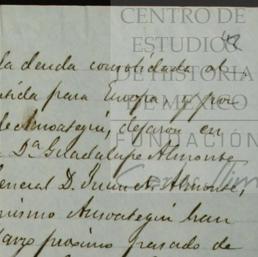 CENTRO DE
ESTUDIOS
DE HISTORIA
DE MÉXICO
FUNDACIÓN
Carlos Slim
la deuda consolidada al
para Europa, y por
de Ansoategui, dejaron en
Da. Guadalupe Almonte
General D. Juan N. Almonte,
mismo Ansoategui han
Marzo proximo pasado de